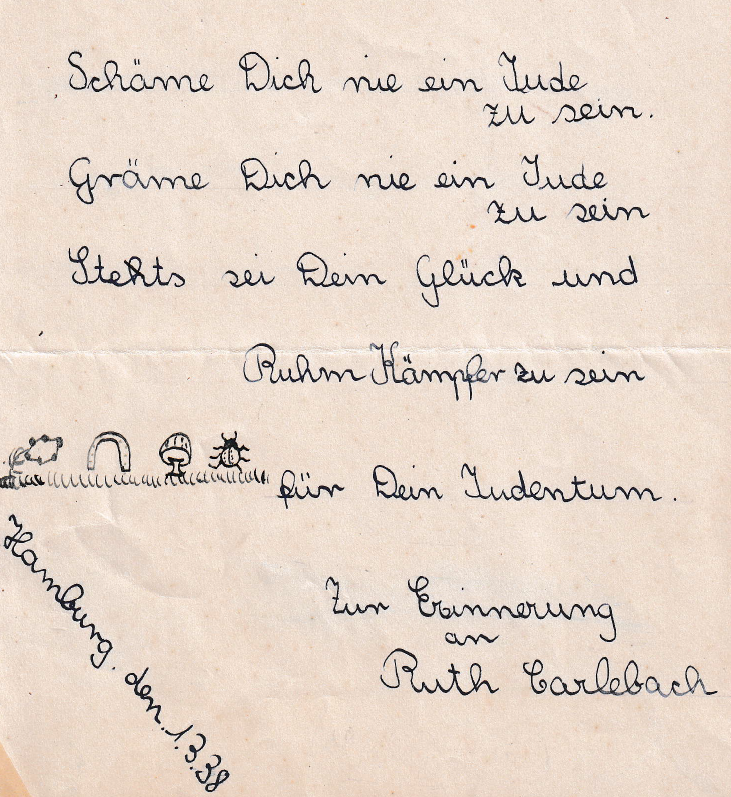 Schäme Dich nie ein Jude
zu sein.
Gräme Dich nie ein Jude
zu sein
Stehts sei Dein Glück und
Ruhm Kämpfer zu sein
für Dein Judentum.
Zur Erinnerung
an
Ruth Carlebach
Hamburg. den. 1.3.38